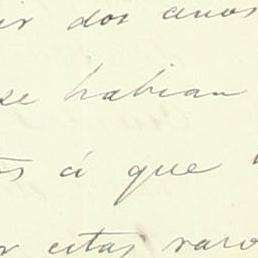 ir dos anos
se habian
os á que
r estas razo